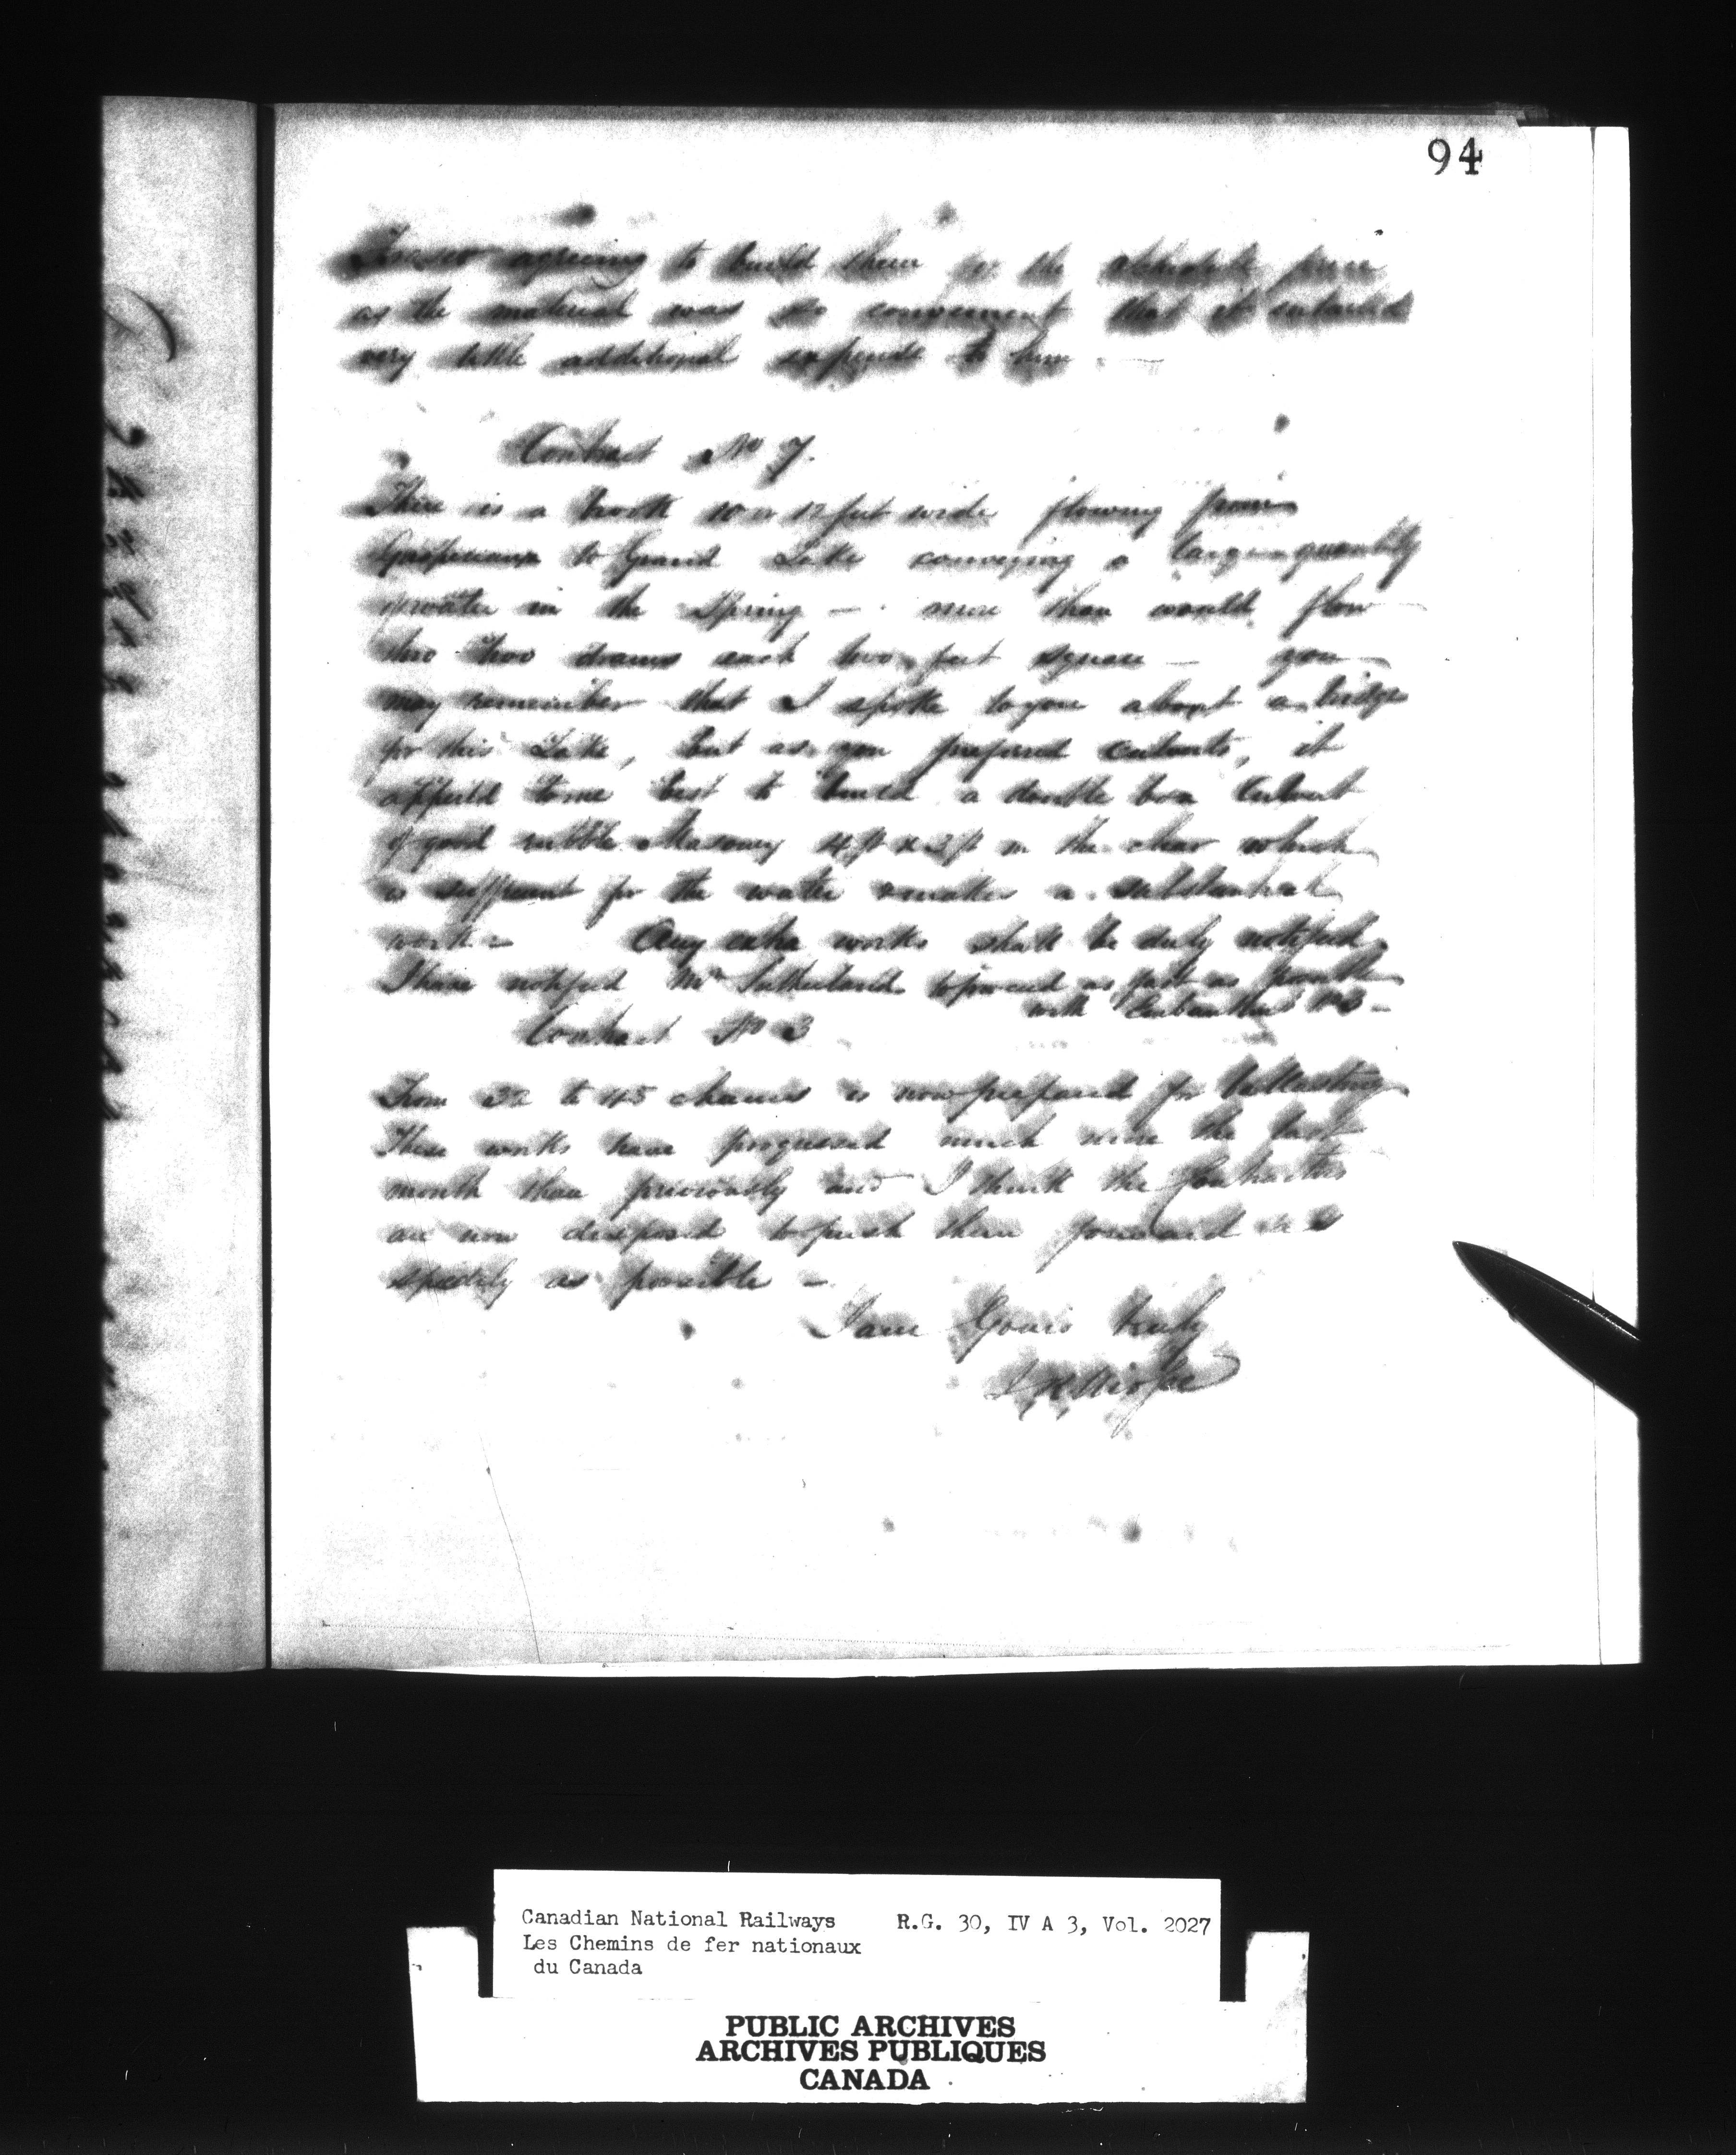 94
agreeing to build them for the schedule price
as the material was so convenient that it entailed
very little additional expense to him —
Contract No 7.
There is a brook 10 or 12 feet wide flowing from
Gaspereaux to Grand Lake conveying a large quantity
of water in the Spring — more than would flow
thro two drains each two feet square — you
may remember that I spoke to you about a bridge
for this Lake, but as you preferred culverts, it
appeared to me best to build a double box Culvert
of good rubble Masonry 4 ft x 3 ft in the clear which
is sufficient for the water & makes a substantial
work — Any extra works shall be duly notified.
I have notified Mr Sutherland to proceed as fast as possible
with No 3 —
Contract No 3
From 32 to 45 chains is now prepared for ballasting
These works have progressed much more the last
month than previously and I think the Contractors
are now disposed to push them forward as
speedily as possible —
I am Yours truly
Canadian National Railways R.G. 30, IV A 3, Vol. 2027
Les Chemins de fer nationaux
du Canada
PUBLIC ARCHIVES
ARCHIVES PUBLIQUES
CANADA